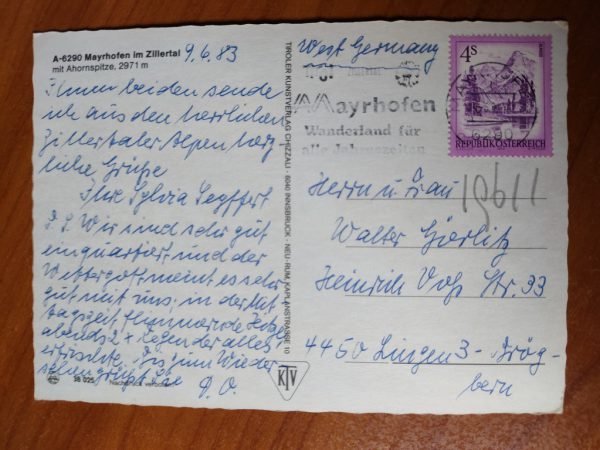 A-6290 Mayrhofen im Zillertal
mit Ahornspitze, 2971 m
9.6.83
Ihnen beiden sende
ich aus den herrlichen
Zillertaler Alpen herz-
liche Grüße
Ihre Sylvia Seyffert
P.S. Wir sind sehr gut
einquartiert und der
Wettergott meint es sehr
gut mit uns, in der Mit
tagszeit flimmernde Hitze,
abends 2 x Regen der alles
erfrischte. Bis zum Wieder
sehen grüßt Sie
D.O.
38 025
TIROLER KUNSTVERLAG CHIZZALI · 6040 INNSBRUCK - NEU-RUM, KAPLANSTRASSE 10
KTV
West Germany
Mayrhofen
Wanderland für
alle Jahreszeiten
4S
REPUBLIK ÖSTERREICH
6290
19611
Herrn u. Frau
Walter Görlitz
Heinrich Voß Str. 33
4450 Lingen 3 - Brög-
bern